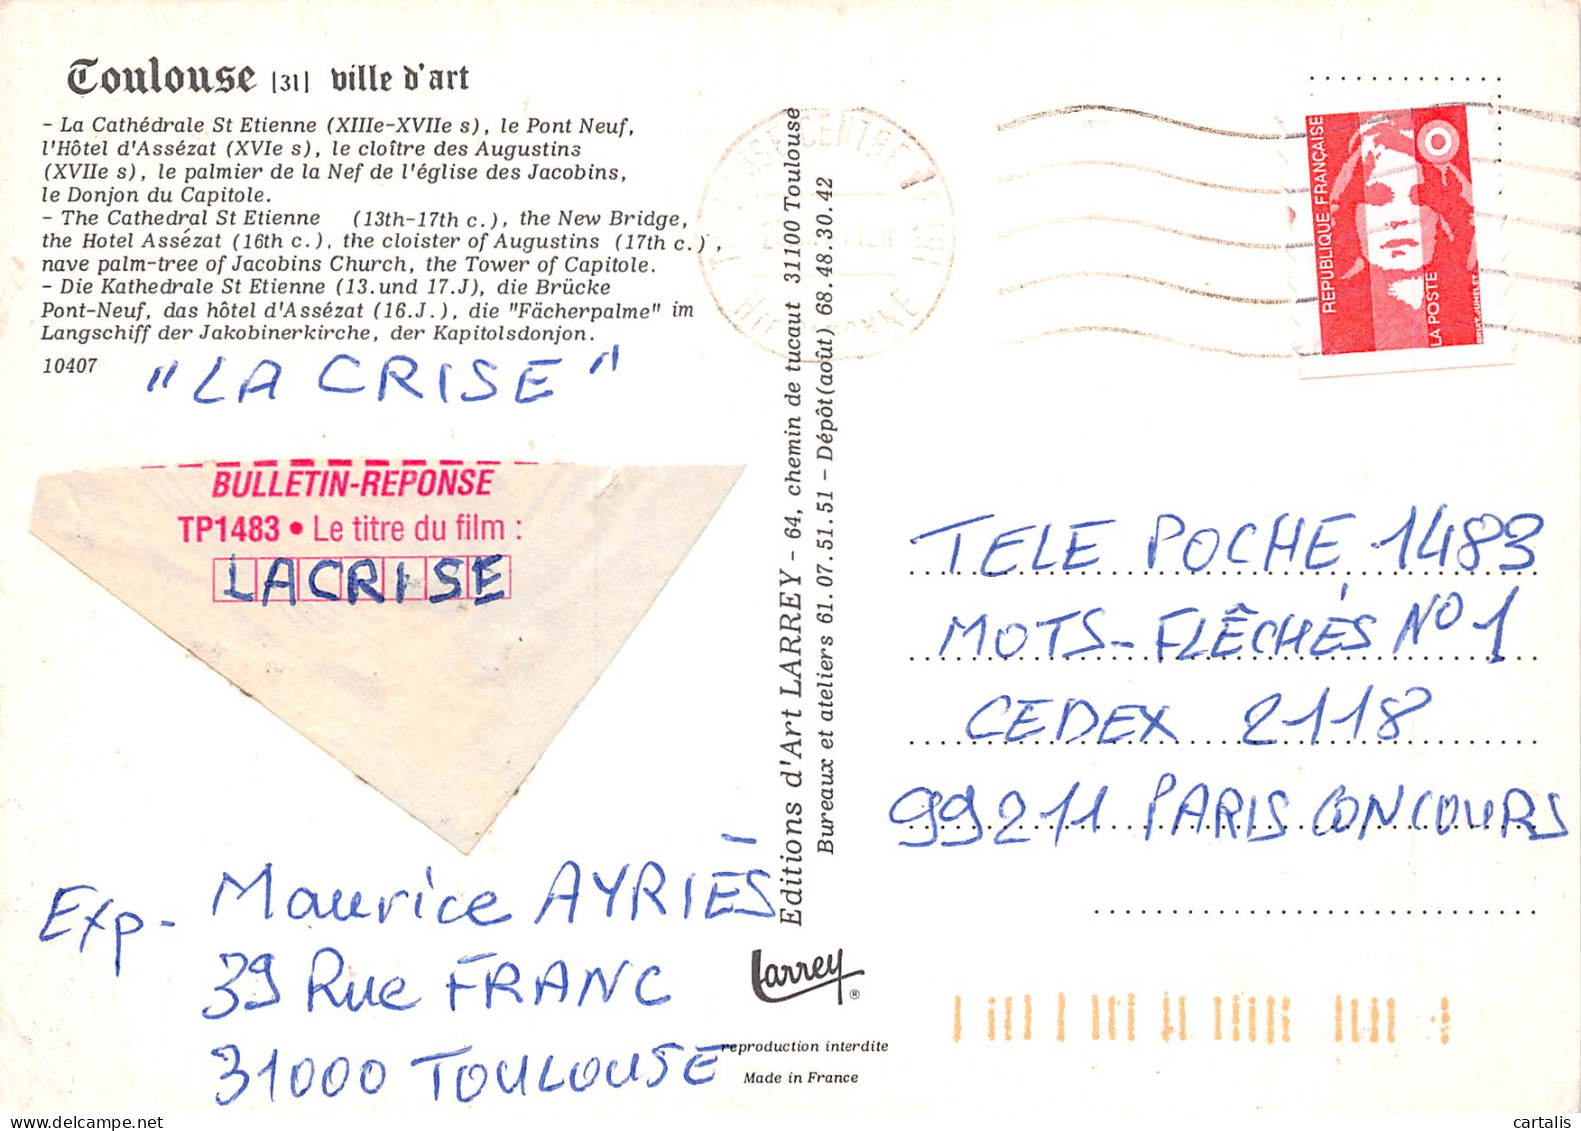 Toulouse [31] ville d'art
- La Cathédrale St Etienne (XIIIe-XVIIe s), le Pont Neuf,
l'Hôtel d'Assézat (XVIe s), le cloître des Augustins
(XVIIe s), le palmier de la Nef de l'église des Jacobins,
le Donjon du Capitole.
- The Cathedral St Etienne (13th-17th c.), the New Bridge,
the Hotel Assézat (16th c.), the cloister of Augustins (17th c.),
nave palm-tree of Jacobins Church, the Tower of Capitole.
- Die Kathedrale St Etienne (13.und 17.J), die Brücke
Pont-Neuf, das hôtel d'Assézat (16.J.), die "Fächerpalme" im
Langschiff der Jakobinerkirche, der Kapitolsdonjon.
10407
"LA CRISE"
BULLETIN-REPONSE
TP1483 • Le titre du film :
LACRISE
Exp- Maurice AYRIÈS
39 Rue FRANC
31000 TOULOUSE
Editions d'Art LARREY - 64, chemin de tuccaut 31100 Toulouse
Bureaux et ateliers 61.07.51.51 - Dépôt (août) 68.48.30.42
Larrey ®
reproduction interdite
Made in France
CENTRE
REPUBLIQUE FRANÇAISE
LA POSTE
BRIAT-JUMELET
TELE POCHE 1483
MOTS-FLÊCHÉS N° 1
CEDEX 2118
99211 PARIS CONCOURS
cartalis